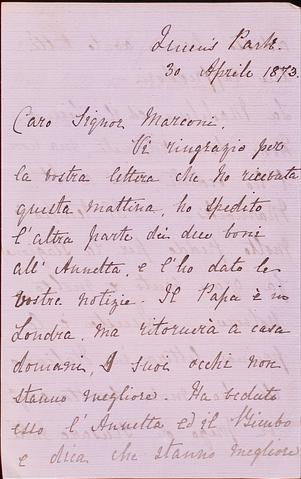 Queen's Park.
30 Aprile 1873.
Caro Signor Marconi,
Vi ringrazio per
la vostra lettera che ho ricevuta
questa mattina, ho spedito
l'altra parte dei due boni
all'Annetta, e l'ho dato le
vostre notizie. Il Papa è in
Londra, ma ritornerà a casa
domani, I suoi occhi non
stanno megliore. Ha veduto
esso l'Annetta ed il Bimbo
e dica che stanno megliore